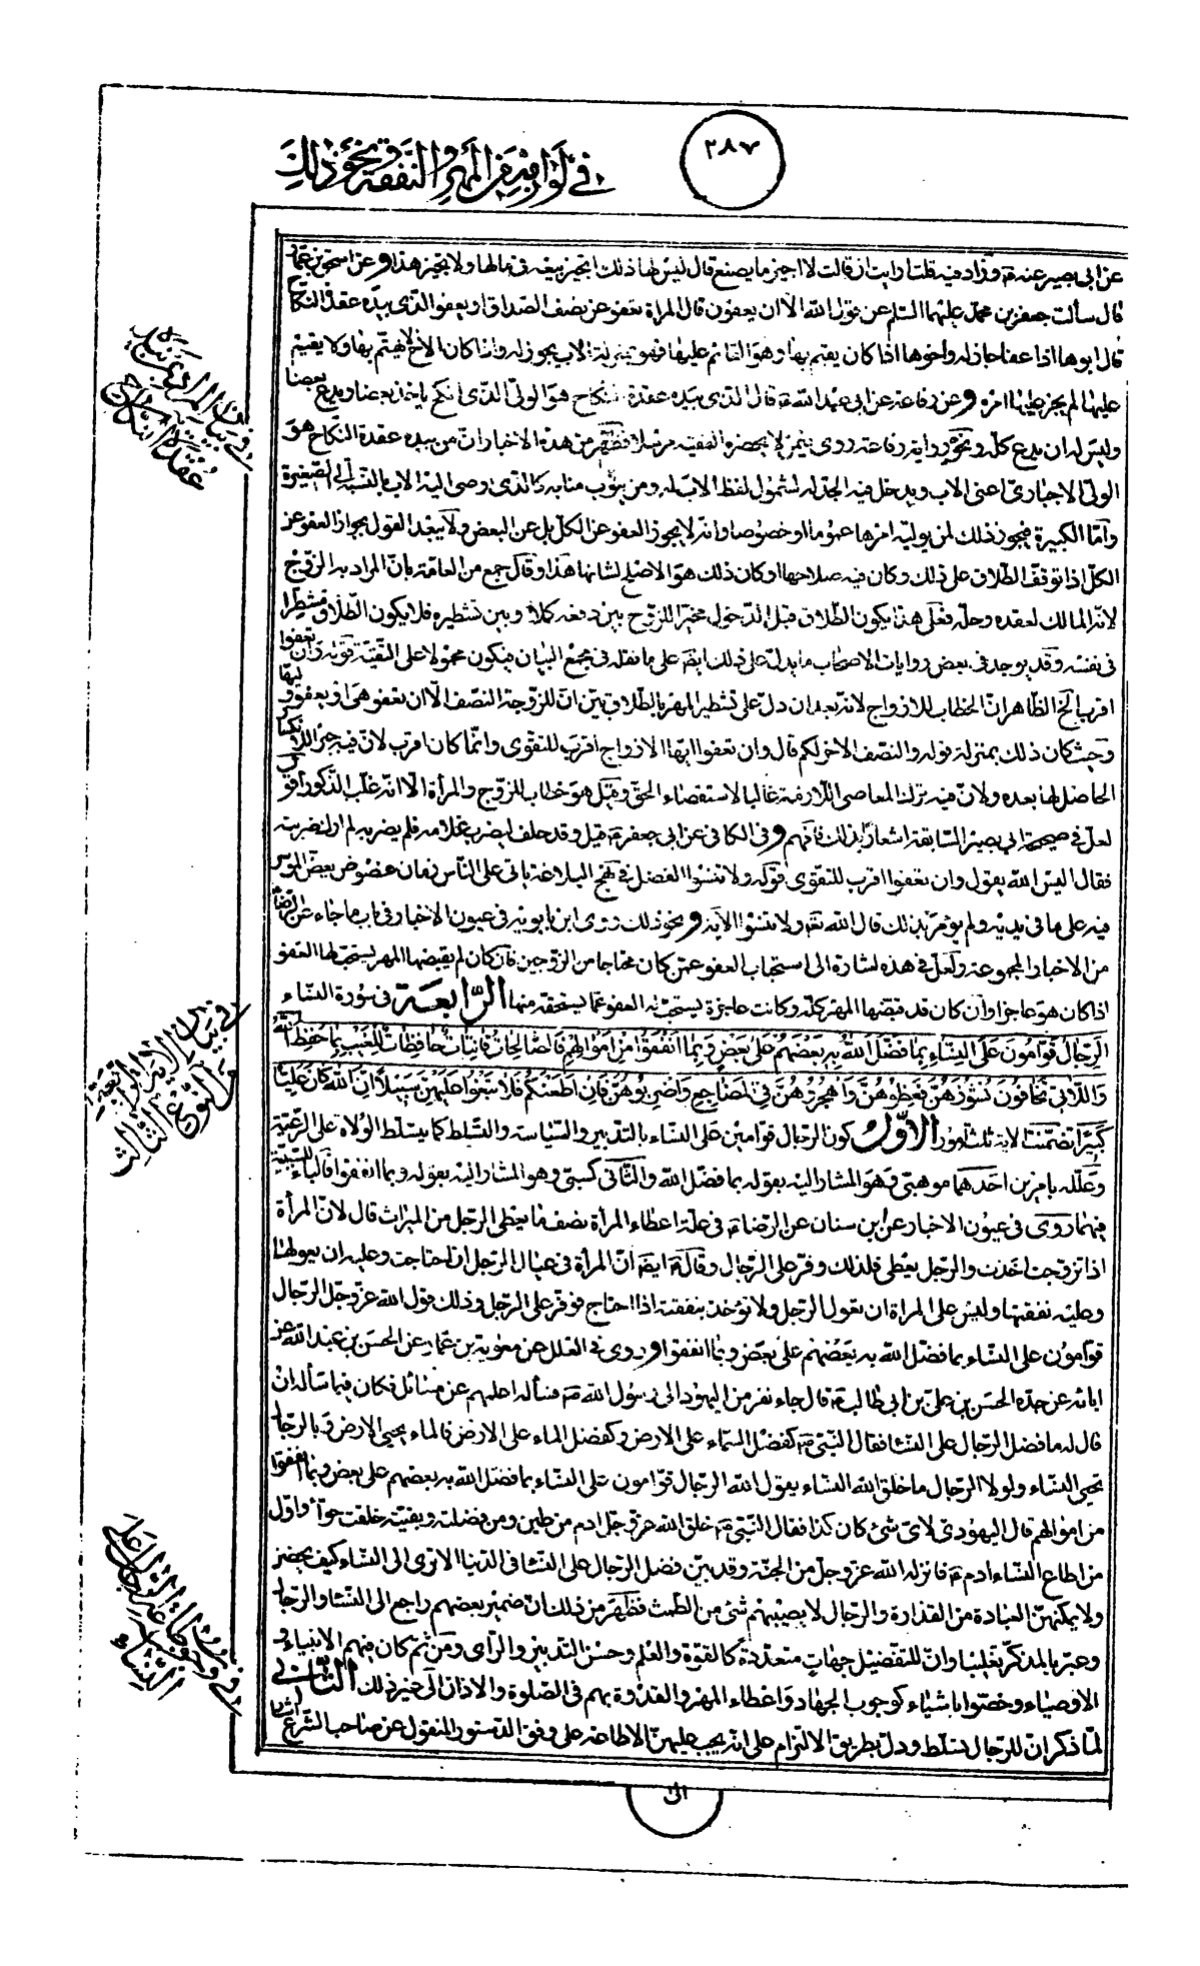 ٢٨٧
في لواحقه من المهر والنفقة ونحو ذلك
عن ابى بصير عنه ع وزاد فيه قلت ارايت ان قالت لا اجيز ما يصنع قال ليس لها ذلك اتجيز بيعه في مالها ولا يجيز هذا وعن اسحق بن عمار
قال سألت جعفر بن محمد عليهما السلم عن قول الله الا ان يعفون قال المراة تعفو عن نصف الصداق او يعفو الذى بيده عقدة النكاح
قال ابوها اذا عفا جاز له واخوها اذا كان يقيم بها وهو القائم عليها فهو بمنزلة الاب يجوز له واذا كان الاخ لا يهتم بها ولا يقيم
عليها لم يجز عليها امره وعن رفاعة عن ابى عبد الله ع قال الذى بيده عقدة النكاح هو الولى الذى انكح ياخذ بعضا ويدع بعضا
وليس له ان يدع كله ونحو رواية رفاعة روى في من لا يحضره الفقيه مرسلا فظهر من هذه الاخبار ان من بيده عقدة النكاح هو
الولى الاجبارى اعنى الاب ويدخل فيه الجد له لشمول لفظ الاب له ومن ينوب منابه كالذى وصى اليه الاب بالنسبة الى الصغيرة
وامّا الكبيرة فيجوز ذلك لمن يوليه امرها عموما او خصوصا وانه لا يجوز العفو عن الكل بل عن البعض ولا يبعد القول بجواز العفو عن
الكل اذا توقف الطلاق على ذلك وكان فيه صلاحها او كان ذلك هو الاصلح لشانها هذا وقال جمع من العامة بان المراد به الزوج
لانه المالك لعقده وحله فعلى هذا يكون الطلاق قبل الدخول مخيرا للزوج بين دفعه كملا وبين تشطيره فلا يكون الطلاق مشطرا
في نفسه وقد يوجد في بعض روايات الاصحاب ما يدل على ذلك ايضا على ما نقله في مجمع البيان فيكون محمولا على التقية قوله وان تعفوا
اقرب الخ الظاهر ان الخطاب للازواج لانه بعد ان دل على تشطير المهر بالطلاق بين ان للزوجة النصف الا ان تعفو هى او يعفو وليها
وحيث كان ذلك بمنزلة قوله والنصف الاخر لكم قال وان تعفوا ايها الازواج اقرب للتقوى وانما كان اقرب لان فيه جبر الانكسار
الحاصل لها بعده ولان فيه ترك المعاصى اللازمة غالبا لاستقصاء الحق وقيل هو خطاب للزوج والمرأة الا انه غلب الذكور
لعل في صحيحة ابى بصير السابقة اشعارا بذلك فافهم وفي الكافى عن ابى جعفر ع قيل وقد حلف ليضرب غلامه فلم يضربه لم ار لك ضربته
فقال اليس الله يقول وان تعفوا اقرب للتقوى قوله ولا تنسوا الفضل في نهج البلاغة ياتى على الناس زمان عضوض يعض الموسر
فيه على ما في يديه ولم يؤمر بذلك قال الله تعالى ولا تنسوا الآية ونحو ذلك روى ابن بابويه في عيون الاخبار في باب ما جاء عن الرضا
من الاخبار المجموعة ولعل في هذه اشارة الى استحباب العفو عمن كان محتاجا من الزوجين فان كان لم يقبضها المهر يستحب لها العفو
اذا كان هو عاجزا وان كان قد قبضها المهر كله وكانت عاجزة يستحب له العفو عما يستحقه منها الرّابعة في سورة النساء
الرّجال قوّامون على النّساء بما فضّل الله به بعضهم على بعض وبما انفقوا من اموالهم فالصّالحات قانتات حافظات للغيب بما حفظ الله
واللّاتى تخافون نشوزهنّ فعظوهنّ واهجروهنّ في المضاجع واضربوهنّ فان اطعنكم فلا تبغوا عليهنّ سبيلا انّ الله كان عليّا
كبيرا تضمنت الاية ثلث امور الاوّل كون الرجال قوامين على النساء بالتدبير والسياسة والتسلط كما يتسلط الولاة على الرعية
وعلله بامرين احدهما موهبى وهو المشار اليه بقوله بما فضل الله والثانى كسبى وهو المشار اليه بقوله وبما انفقوا فالباء للسببية
فيهما روى في عيون الاخبار عن ابن سنان عن الرضا ع في علة اعطاء المرأة نصف ما يعطى الرجل من الميراث قال لان المرأة
اذا تزوجت اخذت والرجل يعطى فلذلك وفر على الرجال وقال ع ايضا ان المرأة في عيال الرجل ان احتاجت وعليه ان يعولها
وعليه نفقتها وليس على المراة ان تعول الرجل ولا تؤخذ بنفقته اذا احتاج فوفر على الرجل وذلك قول الله عز وجل الرجال
قوامون على النساء بما فضل الله به بعضهم على بعض وبما انفقوا وروى في العلل عن معوية بن عمار عن الحسن بن عبد الله عن
ابائه عن جده الحسن بن على بن ابى طالب ع قال جاء نفر من اليهود الى رسول الله ص فسأله اعلمهم عن مسائل فكان فيما سأله ان
قال له ما فضل الرجال على النساء فقال النبى ص كفضل السماء على الارض وكفضل الماء على الارض فالماء يحيى الارض وبالرجال
تحيى النساء ولولا الرجال ما خلق الله النساء يقول الله الرجال قوامون على النساء بما فضل الله به بعضهم على بعض وبما انفقوا
من اموالهم قال اليهودى لاى شئ كان كذا فقال النبى ص خلق الله عز وجل ادم من طين ومن فضلته وبقيته خلقت حوا واول
من اطاع النساء ادم ع فانزله الله عز وجل من الجنة وقد بين فضل الرجال على النساء في الدنيا الا ترى الى النساء كيف يحضن
ولا يمكنهن العبادة من القذارة والرجال لا يصيبهم شئ من الطمث فظهر من ذلك ان ضمير بعضهم راجع الى النساء والرجال
وعبر بالمذكر تغليبا وان للتفضيل جهات متعددة كالقوة والعلم وحسن التدبير والراى ومن ثم كان فيهم الانبياء و
الاوصياء وخصوا باشياء كوجوب الجهاد واعطاء المهر والقدوة بهم في الصلوة والاذان الى غير ذلك الثّانى
لما ذكر ان للرجال تسلط ودل بطريق الالتزام على انه يجب عليهن الاطاعة على وفق الدستور المنقول عن صاحب الشرع اشار
الى
في بيان المراد بمن بيده
عقدة النكاح
في بيان الاية الرابعة
من النوع الثالث